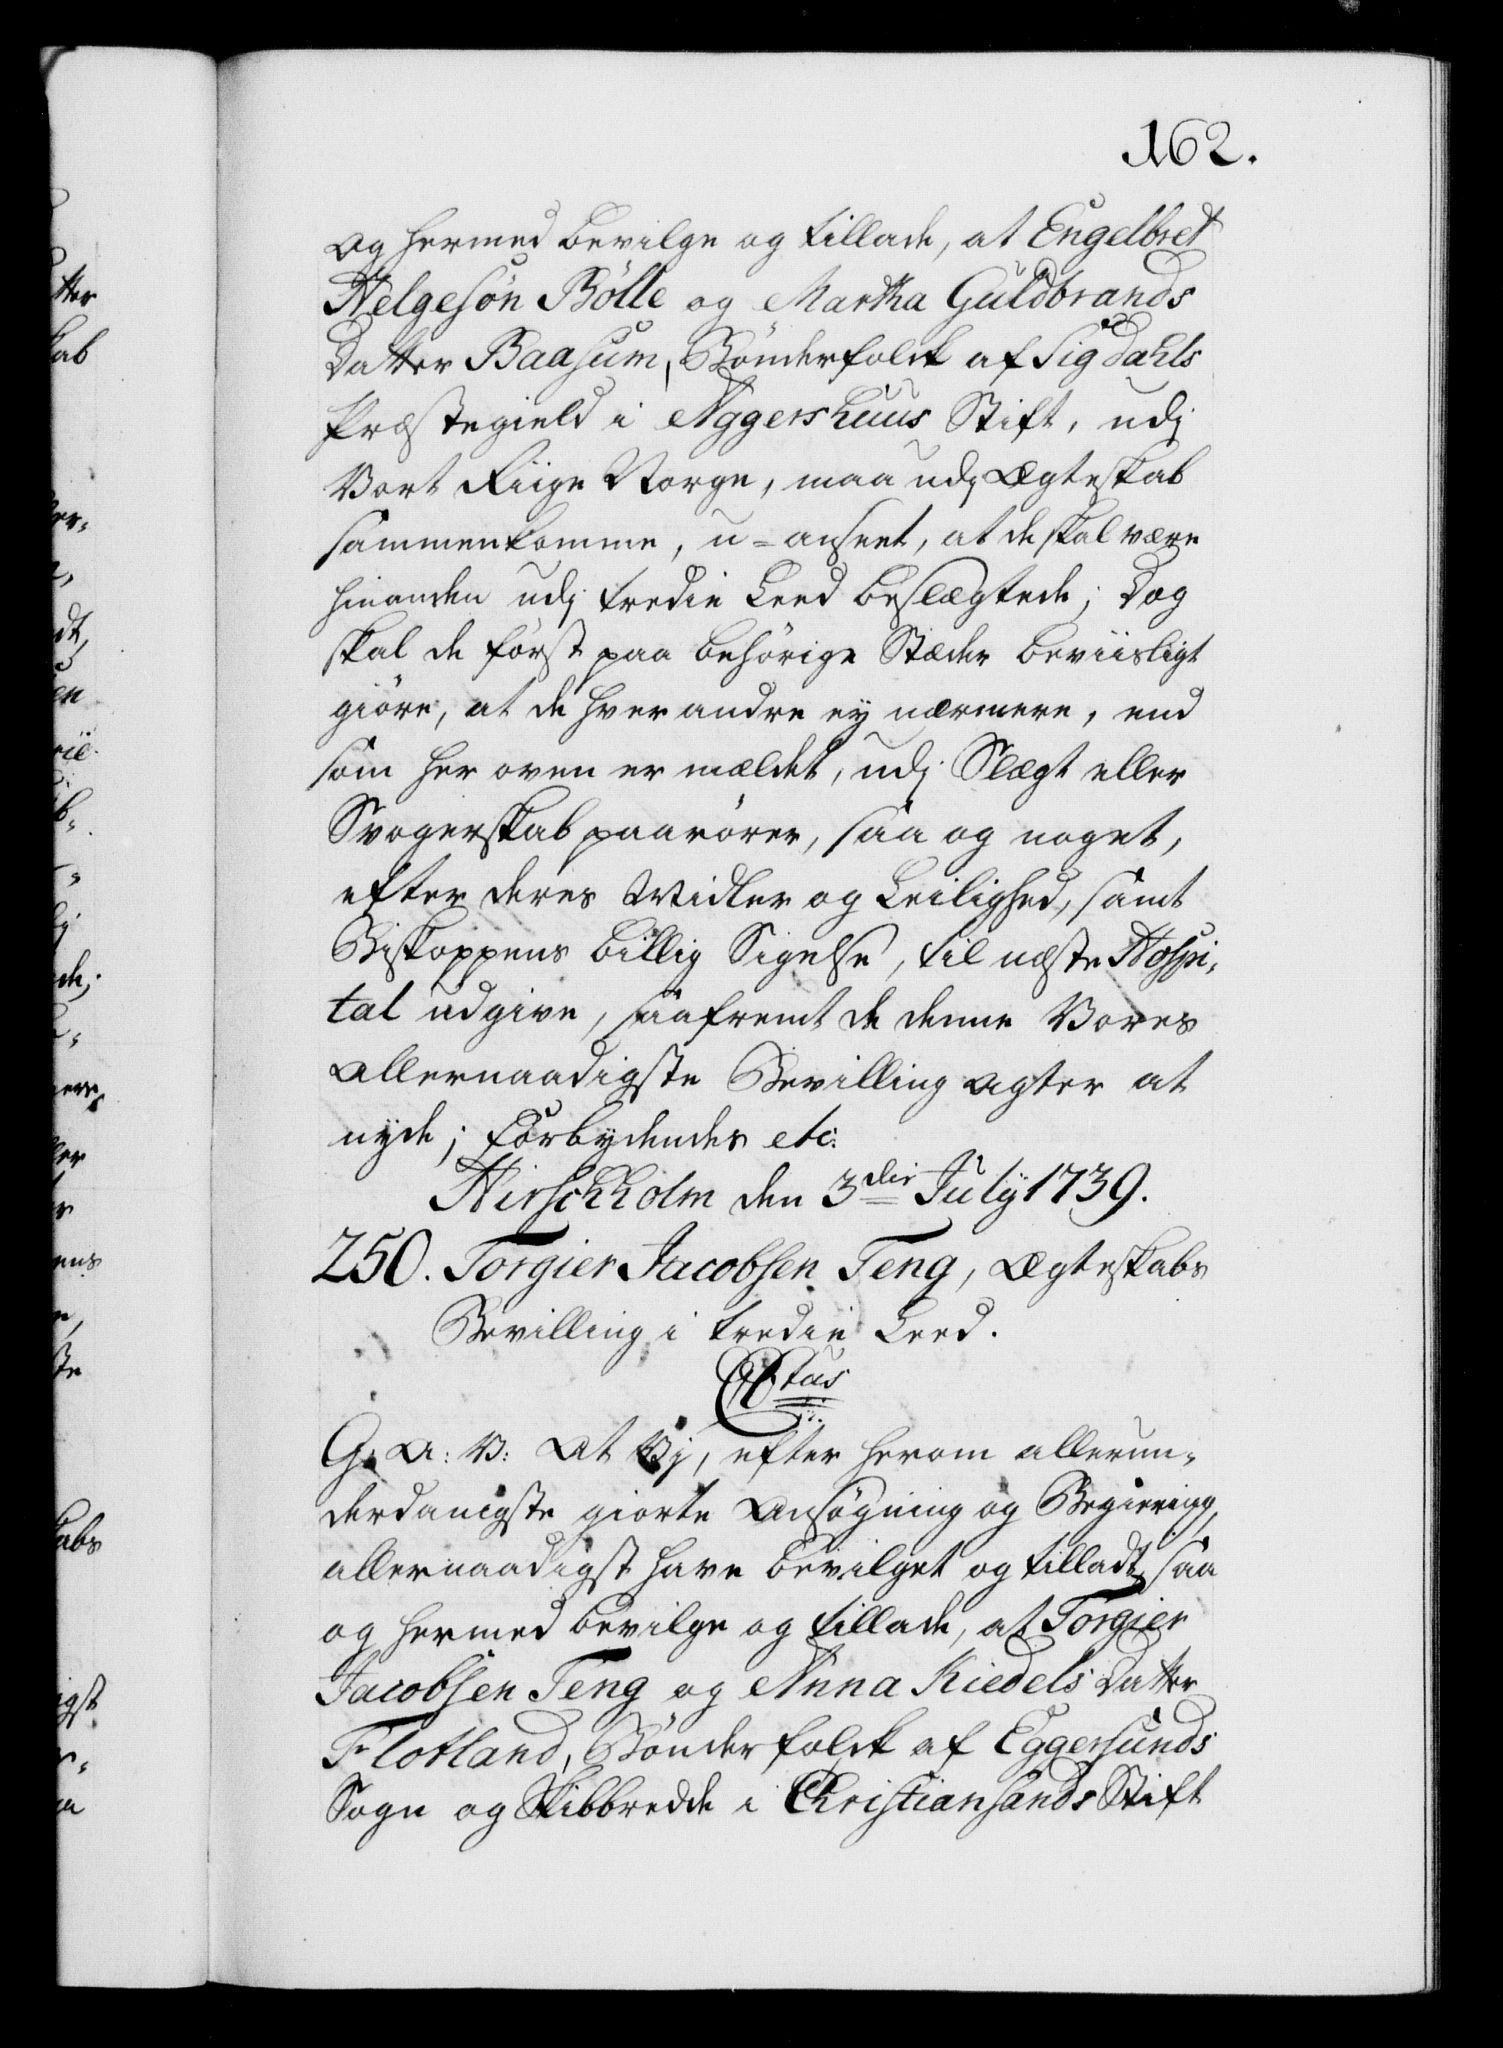 162.
og hermed bevilge og tillade, at Engelbret
Helgesøn Bølle og Martha Guldbrands
Datter Baasum, Bønderfolck af Sigdahls
Præstegield i Aggershuus Stift, udj
Vort Riige Norge, maa udj Ægteskab
sammenkomme, u=anseet, at de skal være
hinanden udj tredie Leed beslægtede; Dog
skal de først paa behörige Stæder beviisligt
giöre, at de hverandre ey nærmere, end
som her oven er mældet, udj Slægt eller
Svogerskab paarörer, saa og noget,
efter deres Midler og Leilighed, samt
Biskoppens billig Sigelse, til næste Hospi-
tal udgive, saafremt de denne Vores
allernaadigste Bevilling agter at
nyde; Forbydendes etc:
Hirschholm den 3die July 1739.
250. Torgier Jacobsen Teng, Ægteskabs
Bevilling i tredie Leed.
C7tus
G: A: V: At Vj, efter herom allerun-
derdanigste giorte Ansøgning og Begiering,
allernaadigst have bevilget og tilladt, saa
og hermed bevilge og tillade, at Torgier
Jacobsen Teng og Anna Kiedels Datter
Flotland, Bønderfolck af Eggersunds
Sogn og Skibbredde i Christiansands Stift